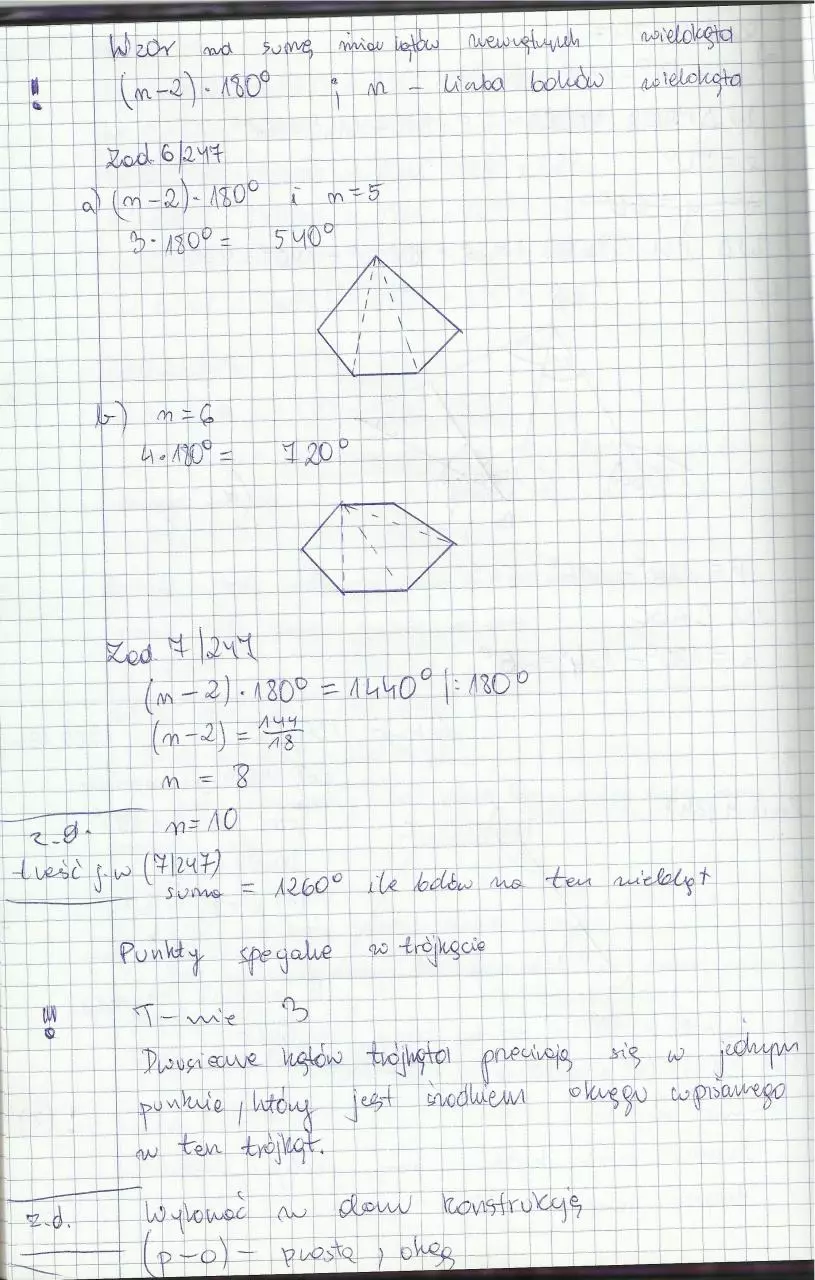 Wzór na sumę miar kątów wewnętrznych wielokąta
! (n-2)·180° ; n - liczba boków wielokąta
Zad. 6/247
a) (n-2)·180° i n=5
3·180°= 540°
b) n=6
4·180°= 720°
Zad 7/247
(n-2)·180°=1440° |:180°
(n-2)=144/18
n = 8
n=10
z.d.
treść j.w (7/247)
suma = 1260° ile boków ma ten wielokąt
Punkty specjalne w trójkącie
! T-nie 3
Dwusieczne kątów trójkąta przecinają się w jednym
punkcie, który jest środkiem okręgu wpisanego
w ten trójkąt.
z.d. Wykonać w domu konstrukcję
(p-o) - prosta, okrąg